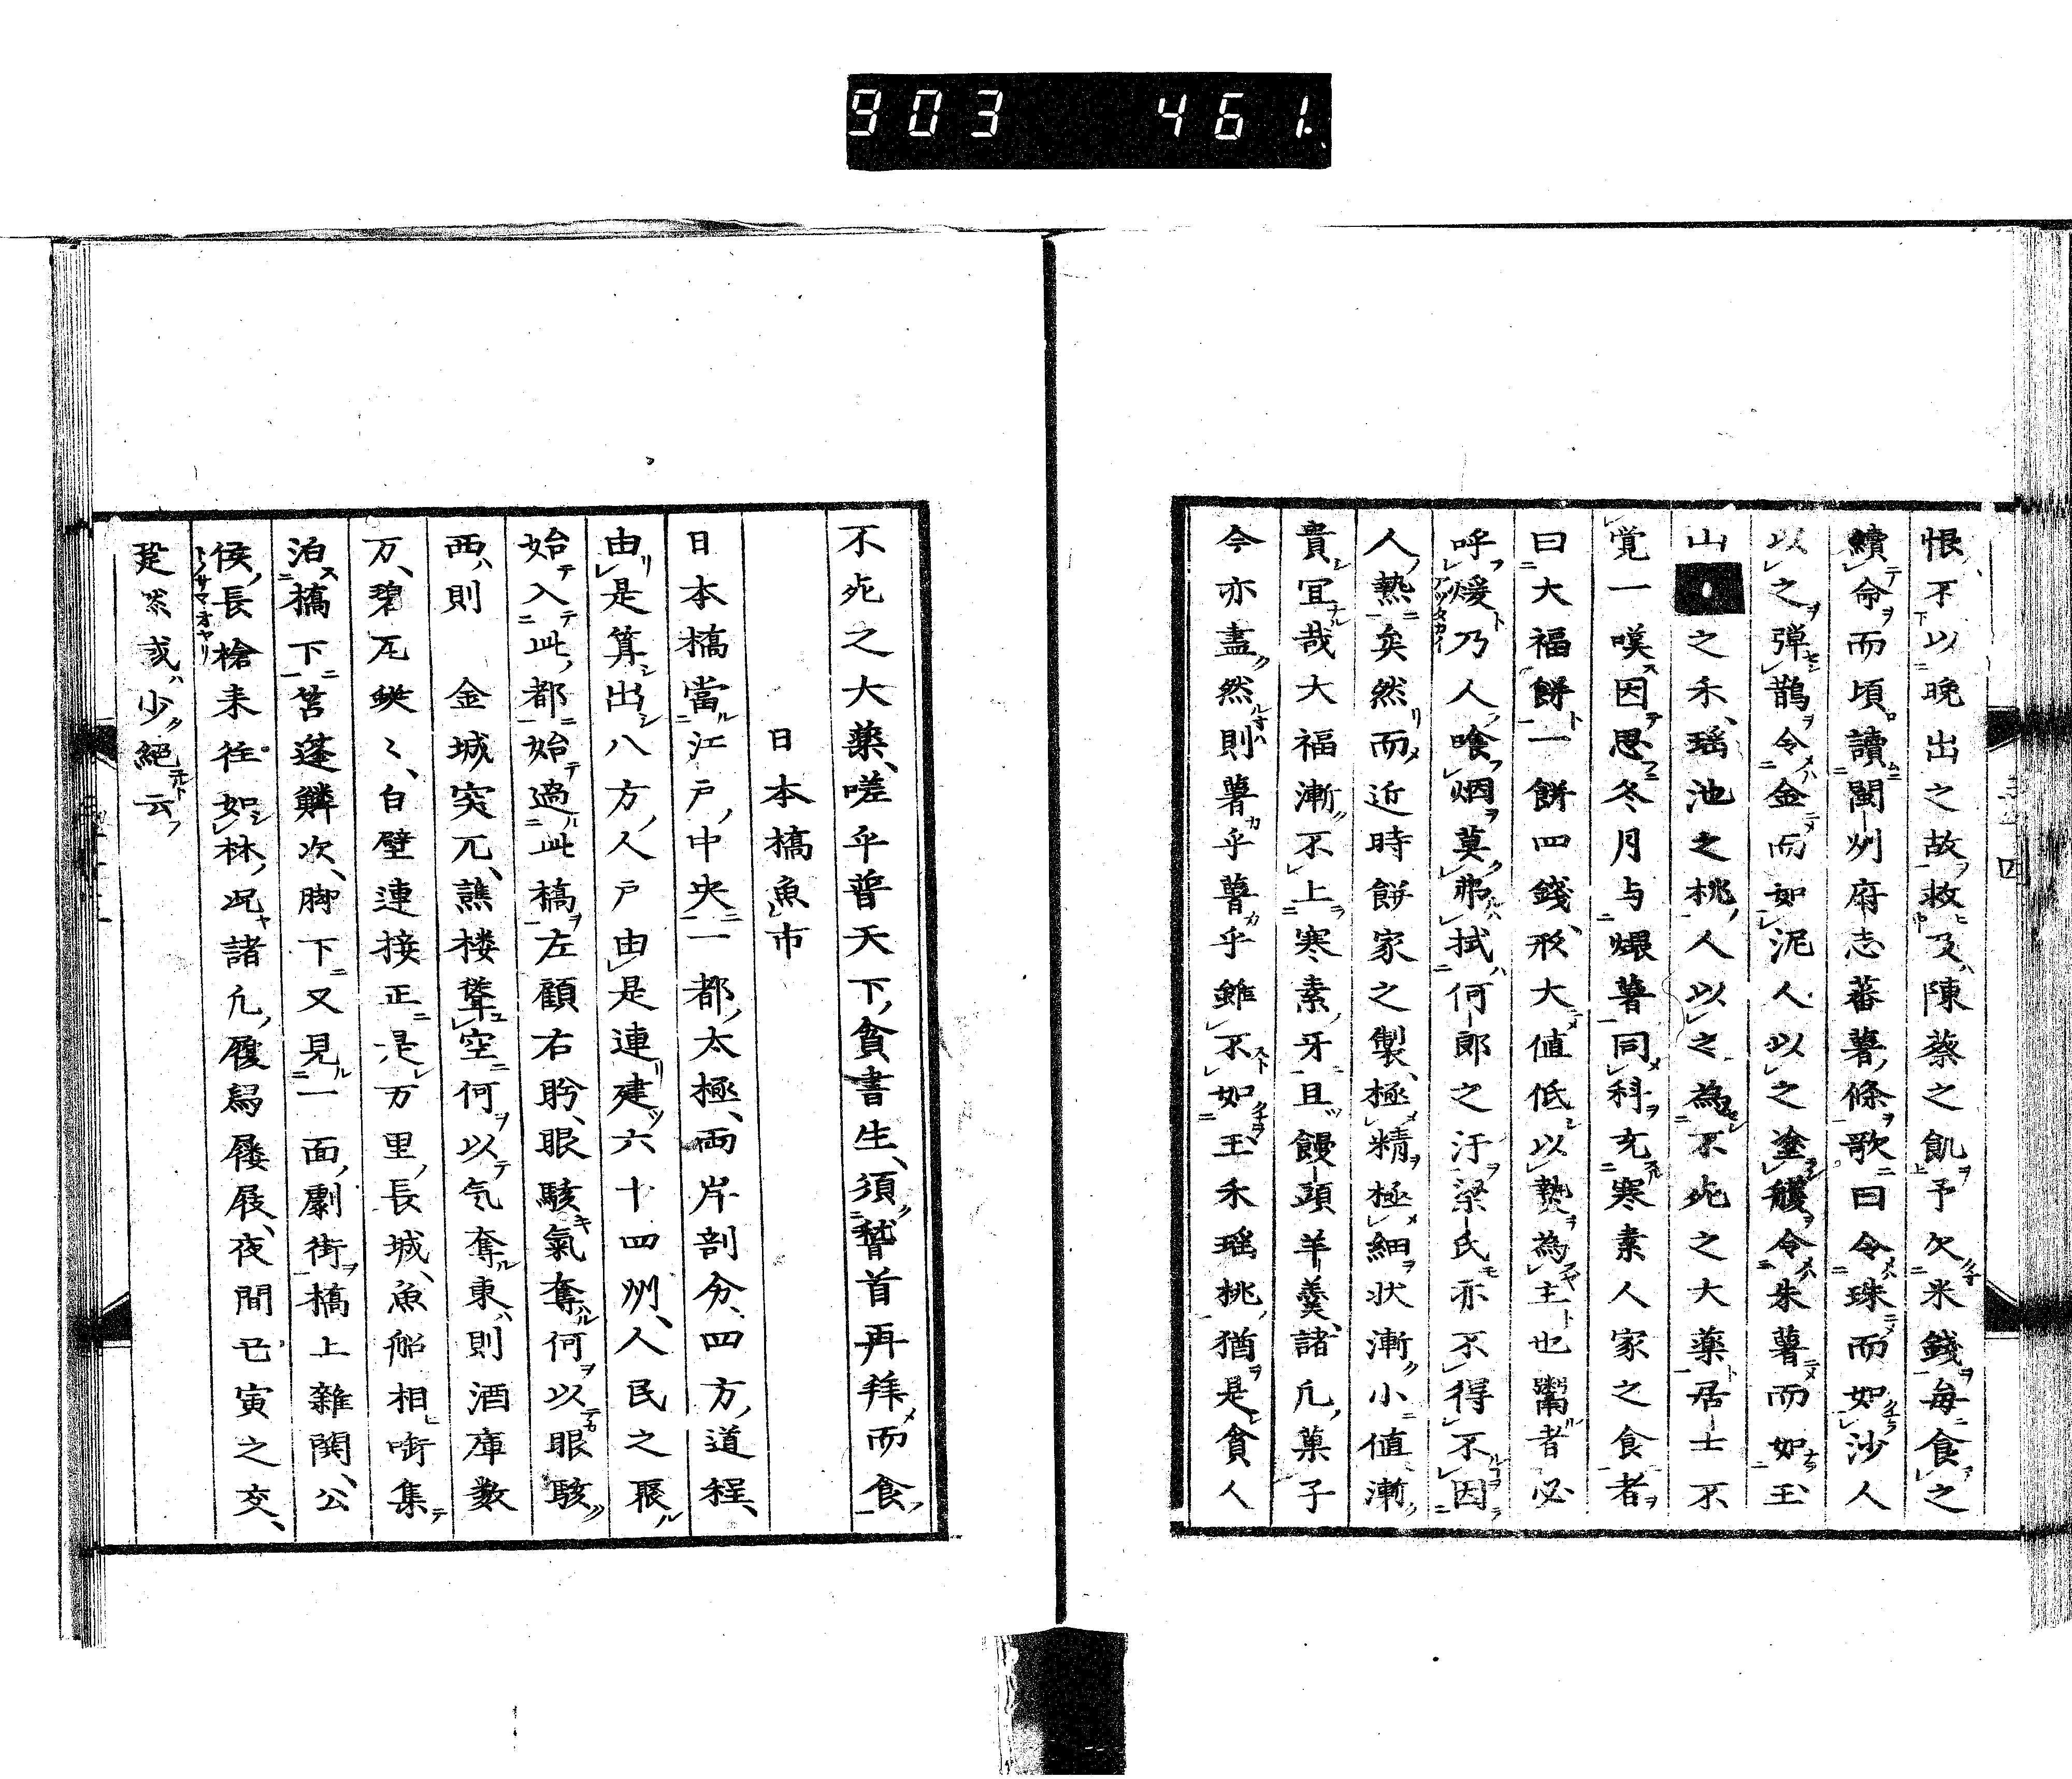 903 461.
恨不以晩出之故救及陳蔡之飢予欠米錢毎食之
續命而頃讀閩州府志蕃薯條歌曰令珠而如沙人
以之彈鵲令金而如泥人以之塗艧令朱薯而如玉
山之禾瑶池之桃人以之為不死之大薬居士不
覚一嘆因思冬月与煨薯同科充寒素人家之食者
曰大福餅一餅四錢形大値低以熱為主也鬻者必
呼煖乃人喰烟莫弗拭何郎之汗梁氏亦不得不因
人熱矣然而近時餅家之製極精極細状漸小値漸
貴宜哉大福漸不上寒素牙且饅頭羊羹諸凡菓子
今亦盡然則薯乎薯乎雖不如玉禾瑶桃猶是貧人
不死之大薬嗟乎普天下貧書生須稽首再拜而食
日本橋魚市
日本橋當江戸中央一都太極両岸剖分四方道程
由是筭出八方人戸由是連建六十四州人民之聚
始入此都始適此橋左顧右盻眼駭氣奪何以眼駭
西則 金城突兀譙楼聳空何以気奪東則酒庫数
万碧瓦鱗〻白壁連接正是万里長城魚船相銜集
泊橋下笘蓬鱗次脚下又見一面劇街橋上雜閙公
侯長槍来往如林况諸凡履舄屨屐夜間丑寅之交
跫然或少絕云
トノサマオヤリ
アッタカイ